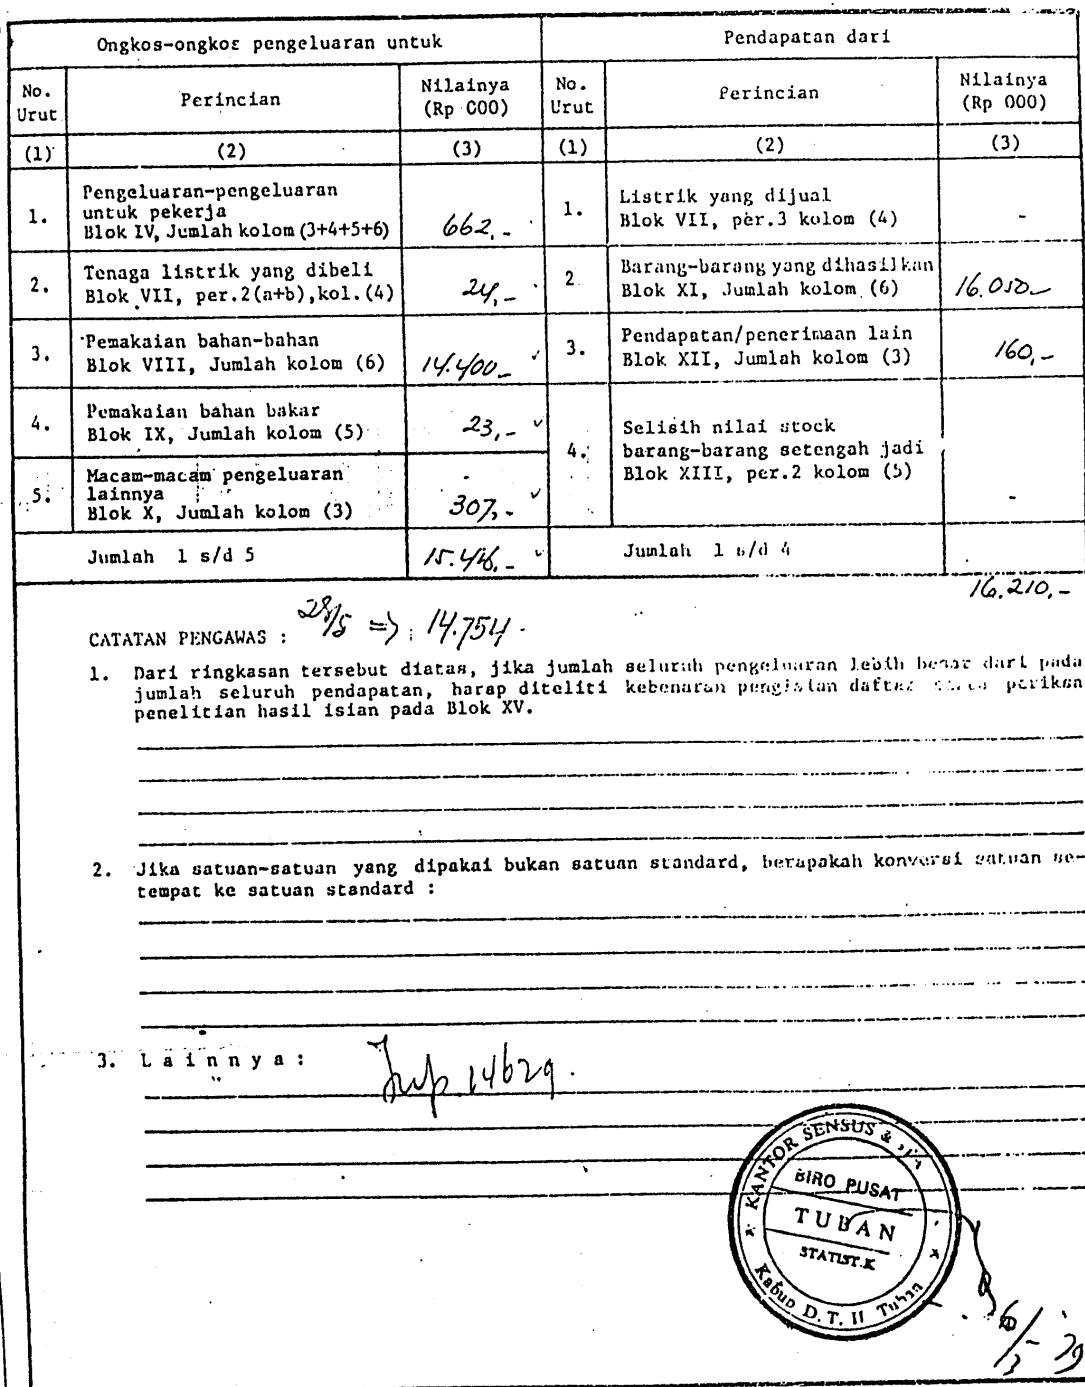 Ongkos-ongkos pengeluaran untuk
Pendapatan dari
No. Urut
Perincian
Nilainya (Rp 000)
No. Urut
Perincian
Nilainya (Rp 000)
(1)
(2)
(3)
(1)
(2)
(3)
1.
Pengeluaran-pengeluaran
untuk pekerja
Blok IV, Jumlah kolom (3+4+5+6)
662,-
1.
Listrik yang dijual
Blok VII, per.3 kolom (4)
-
2.
Tenaga listrik yang dibeli
Blok VII, per.2(a+b),kol.(4)
24,-
2
Barang-barang yang dihasilkan
Blok XI, Jumlah kolom (6)
16.050-
3.
Pemakaian bahan-bahan
Blok VIII, Jumlah kolom (6)
14.400-
3.
Pendapatan/penerimaan lain
Blok XII, Jumlah kolom (3)
160,-
4.
Pemakaian bahan bakar
Blok IX, Jumlah kolom (5)
23,-
4.
Selisih nilai stock
barang-barang setengah jadi
Blok XIII, per.2 kolom (5)
-
5.
Macam-macam pengeluaran
lainnya
Blok X, Jumlah kolom (3)
307,-
Jumlah 1 s/d 5
15.416,-
Jumlah 1 s/d 4
16.210,-
CATATAN PENGAWAS : 28/5 => 14.754.
1. Dari ringkasan tersebut diatas, jika jumlah seluruh pengeluaran lebih besar dari pada
jumlah seluruh pendapatan, harap diteliti kebenaran pengisian daftar periksa
penelitian hasil isian pada Blok XV.
2. Jika satuan-satuan yang dipakai bukan satuan standard, berapakah konversi satuan se-
tempat ke satuan standard :
3. Lainnya : 14629.
KANTOR SENSUS &
BIRO PUSAT
TUBAN
STATIST.K
Kabup D.T. II Tuban